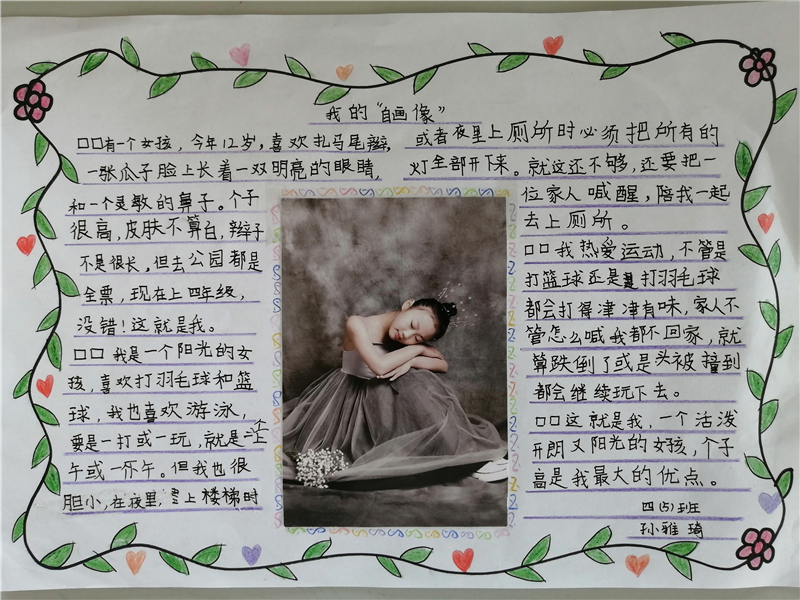 我的“自画像”
□□有一个女孩，今年12岁，喜欢扎马尾辫，
一张瓜子脸上长着一双明亮的眼睛，
和一个灵敏的鼻子。个子
很高，皮肤不算白，辫子
不是很长，但去公园都是
全票，现在上四年级，
没错！这就是我。
□□我是一个阳光的女
孩，喜欢打羽毛球和篮
球，我也喜欢游泳，
要是一打或一玩，就是一个上
午或一下午。但我也很
胆小，在夜里，上楼梯时
或者夜里上厕所时必须把所有的
灯全部开下来。就这还不够，还要把一
位家人喊醒，陪我一起
去上厕所。
□□我热爱运动，不管是
打篮球还是打羽毛球
都会打得津津有味，家人不
管怎么喊我都不回家，就
算跌倒了或是头被撞到
都会继续玩下去。
□□这就是我，一个活泼
开朗又阳光的女孩，个子
高是我最大的优点。
四(5)班
孙雅琦